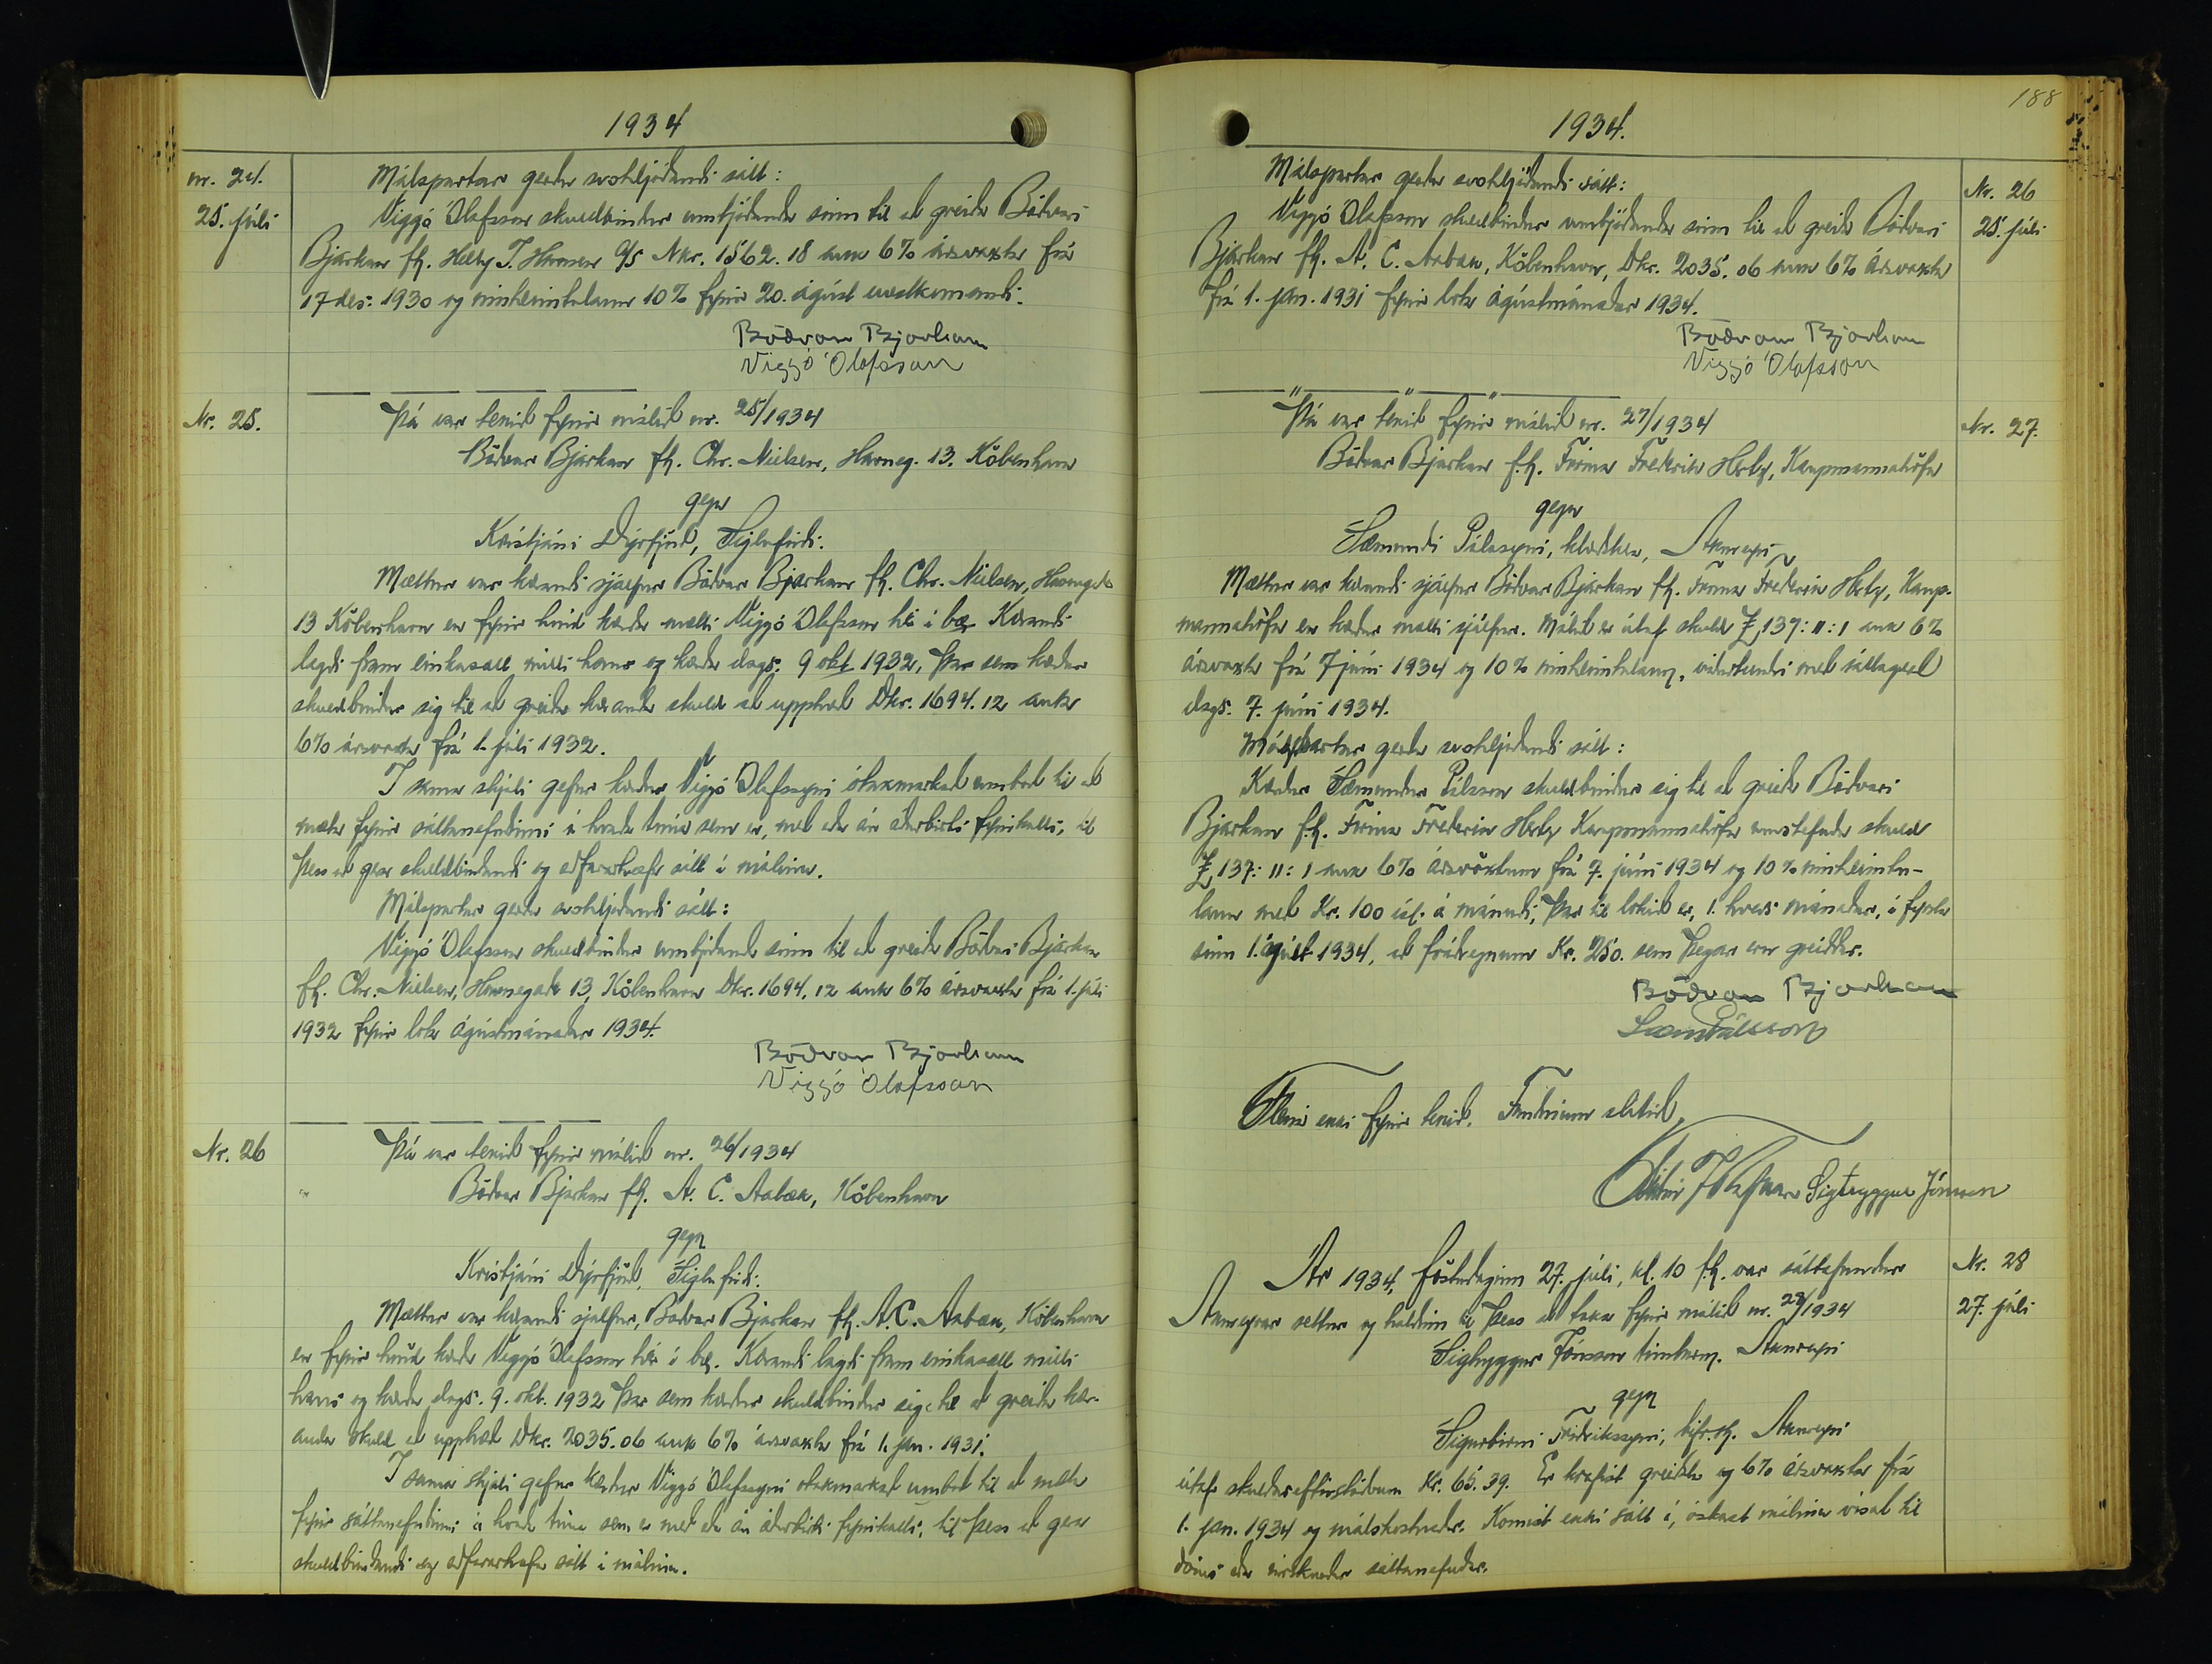 1934
nr. 24.
25. júlí
Málspartar gerðu svohljóðandi sátt:
Viggó Ólafsson skuldbindur umbjóðanda sinn til að greiða Böðvari
Bjarkan fh. T. Hansen A/S Nkr. 1562.18 auk 6% ársvaxta frá
17 des. 1930 og innheimtulaun 10% fyrir 20. ágúst næstkomandi.
Böðvar Bjarkan
Viggó Ólafsson
Nr. 25.
Þá var tekið fyrir málið nr. 25/1934
Böðvar Bjarkan fh. Chr. Nielsen, Havneg. 13. Köbenhavn
gegn
Kristjáni Dýrfjörð, Siglufirði.
Mættur var kærandi sjálfur Böðvar Bjarkan fh. Chr. Nielsen, Havnegade
13 Köbenhavn en fyrir hönd kærða mætti Viggó Ólafsson hér í bæ. Kærandi
lagði fram einkasátt milli hans og kærða dags. 9 okt 1932, þar sem kærður
skuldbindur sig til að greiða kæranda skuld að upphæð Dkr. 1694.12 auk
6% ársvaxta frá 1. júlí 1932.
Í sama skjali gefur kærður Viggó Ólafssyni ótakmarkað umboð til að
mæta fyrir sáttanefndinni á hvaða tíma sem er, með eða án aðurbirts fyrirkalls, til
þess að gera skuldbindandi og aðfararhæfa sátt í málinu.
Málspartar gerðu svohljóðandi sátt:
Viggó Ólafsson skuldbindur umbjóðanda sinn til að greiða Böðvari Bjarkan
fh. Chr. Nielsen, Havnegade 13, Köbenhavn Dkr. 1694.12 auk 6% ársvaxta frá 1. júlí
1932 fyrir lok ágústmánaðar 1934.
Böðvar Bjarkan
Viggó Ólafsson
Nr. 26
Þá var tekið fyrir málið nr. 26/1934
Böðvar Bjarkan fh. A. C. Aabæk, Köbenhavn
gegn
Kristjáni Dýrfjörð, Siglufirði.
Mættur var kærandi sjálfur, Böðvar Bjarkan fh. A. C. Aabæk, Köbenhavn
en fyrir hönd kærða Viggó Ólafsson hér í bæ. Kærandi lagði fram einkasátt milli
hans og kærða dags. 9. okt. 1932 þar sem kærður skuldbindur sig til að greiða kær-
anda skuld að upphæð Dkr. 2035.06 auk 6% ársvaxta frá 1. jan. 1931.
Í sama skjali gefur kærður Viggó Ólafssyni ótakmarkað umboð til að mæta
fyrir sáttanefndinni á hvaða tíma sem er með eða án aðurbirts fyrirkalls, til þess að gera
skuldbindandi og aðfararhæfa sátt í málinu.
188
1934.
Nr. 26
25. júlí
Málspartar gerðu svohljóðandi sátt:
Viggó Ólafsson skuldbindur umbjóðanda sinn til að greiða Böðvari
Bjarkan fh. A. C. Aabæk, Köbenhavn, Dkr. 2035.06 auk 6% ársvaxta
frá 1. jan. 1931 fyrir lok ágústmánaðar 1934.
Böðvar Bjarkan
Viggó Ólafsson
Nr. 27.
Þá var tekið fyrir málið nr. 27/1934
Böðvar Bjarkan f.h. Firma Frederik Kaupmannahöfn
gegn
Sæmundi Pálssyni, klæðsker, Akureyri
Mættur var kærandi sjálfur Böðvar Bjarkan fh. Firma Frederik Kaup-
mannahöfn en kærður mætti sjálfur. Málið er útaf skuld £ 137:11:1 auk 6%
ársvaxta frá 7 júní 1934 og 10% innheimtulaun, viðurkendri með sáttagerð
dags. 7. júní 1934.
Málspartar gerðu svohljóðandi sátt:
Kærður Sæmundur Pálsson skuldbindur sig til að greiða Böðvari
Bjarkan f.h. Firma Frederik Kaupmannahöfn umstefnda skuld
£ 137:11:1 auk 6% ársvöxtum frá 7. júní 1934 og 10% innheimtu-
laun með Kr. 100 ísl. á mánuði, þar til lokið er, 1. hvers mánaðar, í fyrsta
sinn 1. ágúst 1934, að frádregnum Kr. 250. sem þegar eru greiddar.
Böðvar Bjarkan
Sæm Pálsson
Fleira ekki fyrir tekið. Fundinum slitið.
Sigtryggur Jónsson
Nr. 28
27. júlí
Ár 1934, föstudaginn 27. júlí, kl. 10 f.h. var sáttafundur
Akureyrar settur og haldinn til þess að taka fyrir málið nr. 28/1934
Sigtryggur Jónsson timburm. Akureyri
gegn
Sigurbirni Friðrikssyni, bifr.stj. Akureyri
útaf skuldareftirstöðvum Kr. 65.39. Er krafist greiðslu og 6% ársvaxta frá
1. jan. 1934 og málskostnaðar. Komist ekki sátt á, óskast málinu vísað til
dóms eða úrskurðar sáttanefndar.